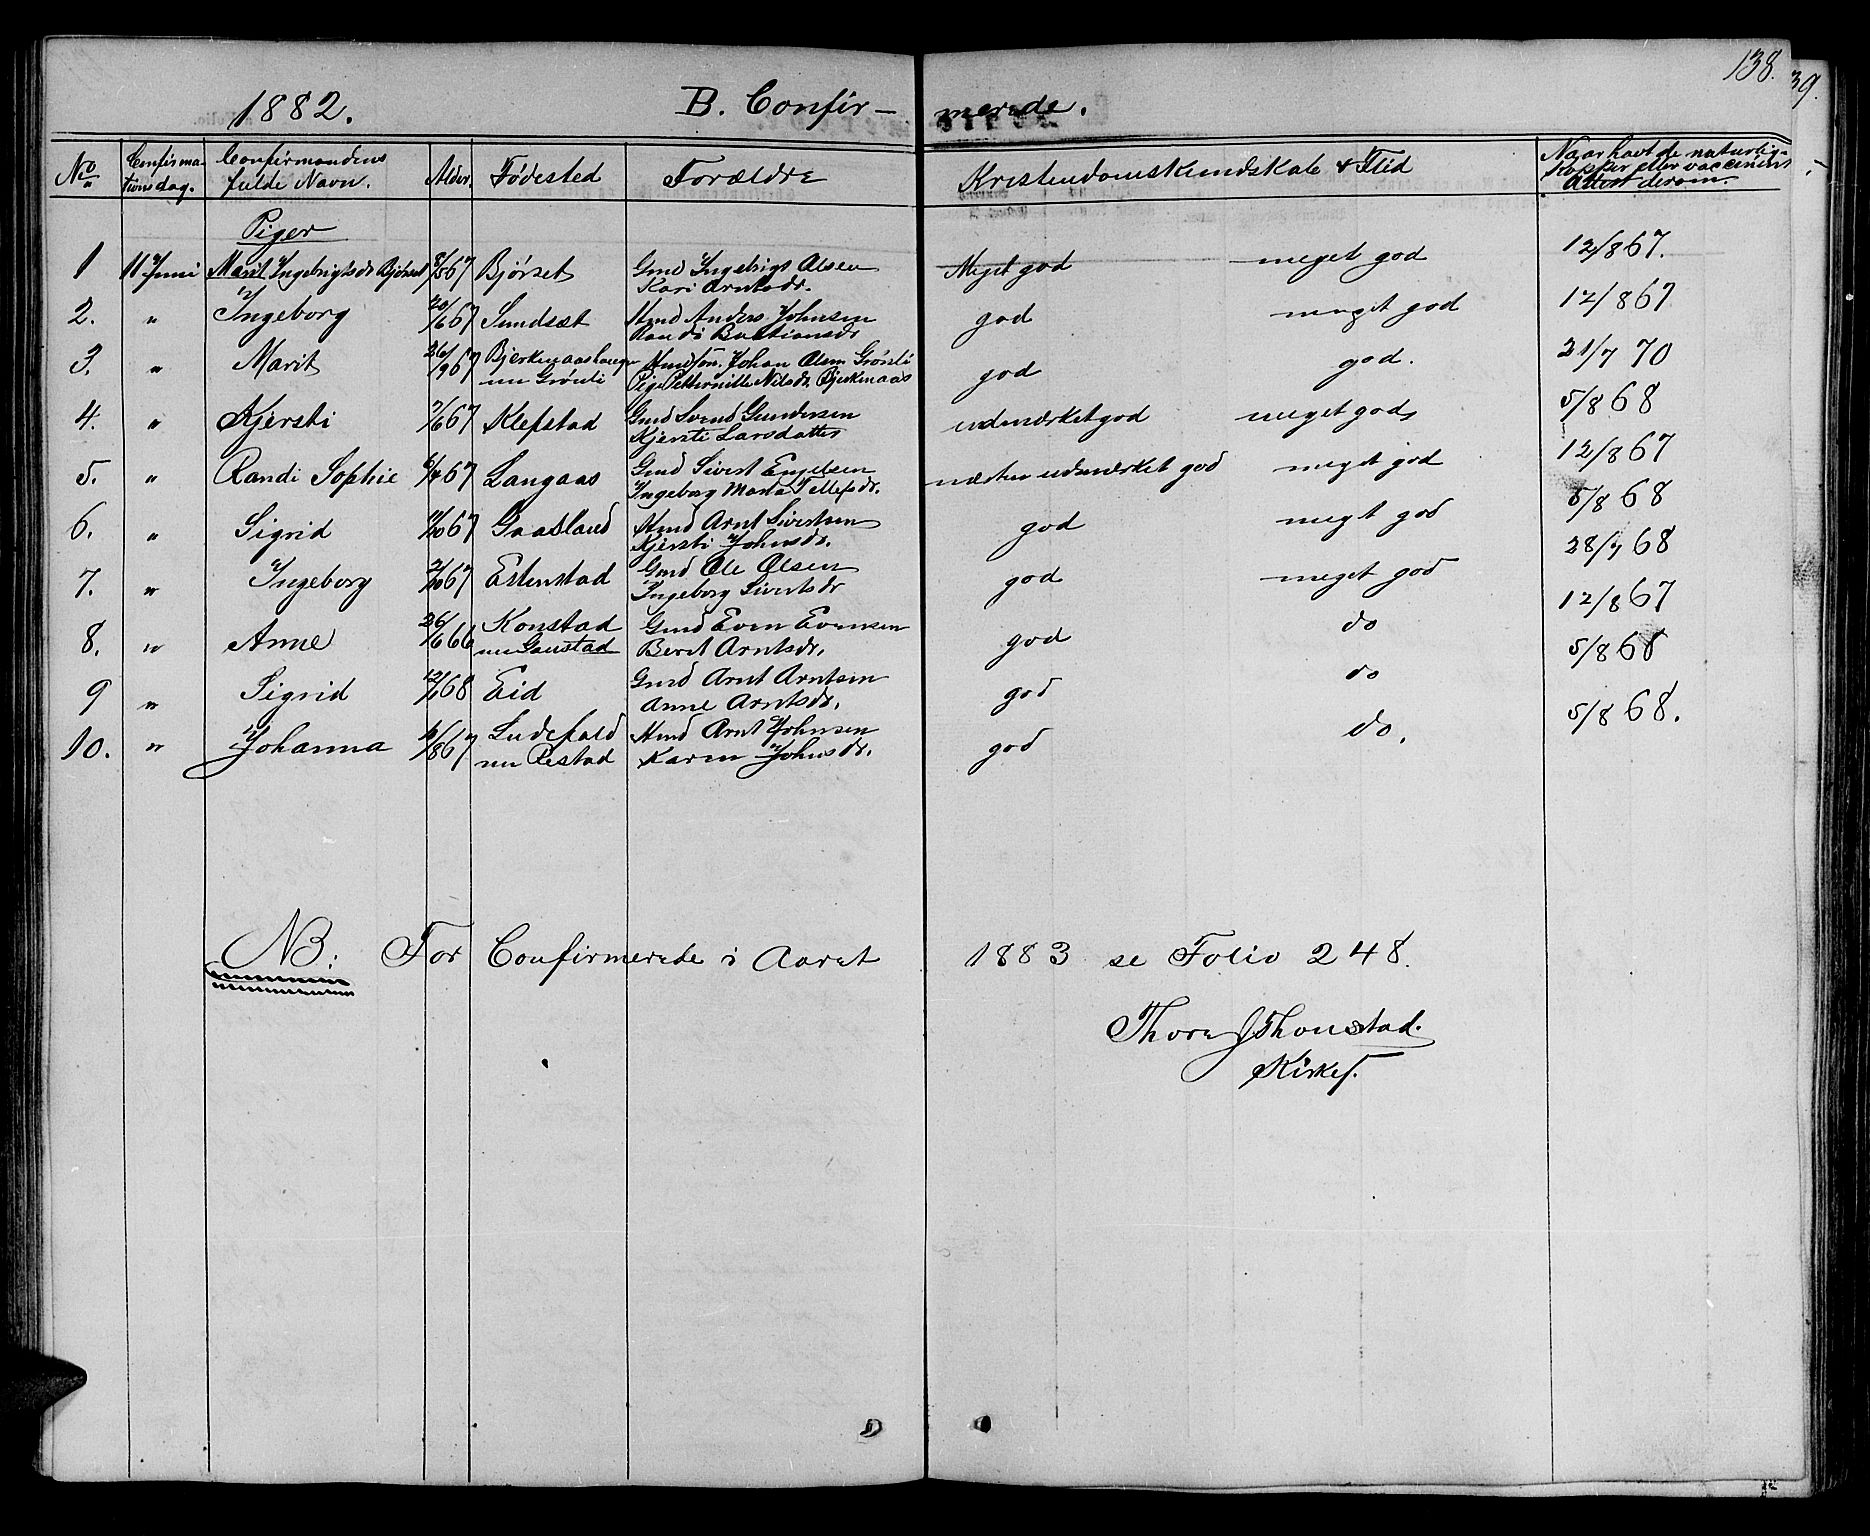 138.
39.
1882. B. Confir- merede.
No Confirma-tionsdag. Confirmandens fulde Navn. Alder. Fødested Forældre Kristendomskundskab & Flid Naar havt de naturlig- Kopper eller vaccineret Attest derom.
Piger
1 11 Juni Marit Ingebrigtsdr Bjørset 8/5 67 Bjørset Gmd Ingebrigt Olsen Kari Arntsdr. Meget god meget god 12/8 67.
2. " Ingeborg 20/6 67 Sundsæt Hmd Anders Johnsen Randi Bastiansdr god meget god 12/8 67
3. " Marit 26/9 67 Bjerkenaashaugen nu Grønli Johan Olsen Grønli Pige Petternille Nilsdr. Bjerkenaas god god. 21/7 70
4. " Kjersti 7/6 67 Klefstad Gmd Svend Gundersen Kjersti Larsdatter udmærket god meget god 5/8 68
5. " Randi Sophie 6/4 67 Langaas Gmd Sivert Engelsen Ingeborg Marta Tellefsdr. næsten udmærket god meget god 12/8 67
6. " Sigrid 11/10 67 Gaasland Hmd Arnt Sivertsen Kjersti Johnsdr. god meget god 5/8 68
7. " Ingeborg 2/10 67 Estenstad Gmd Ole Olsen Ingeborg Sivertsdr god meget god 28/7 68
8. " Anne 26/6 66 Konstad nu Gaustad Gmd Even Evensen Berit Arntsdr. god do 12/8 67
9 " Sigrid 12/1 68 Eid Gmd Arnt Arntsen Anne Arntsdr. god do 5/8 68
10. " Johanna 16/8 67 Ludefald nu Restad Hmd Arnt Johnsen Karen Johnsdr. god do. 5/8 68.
NB: For Confirmerede i Aaret 1883 se Folio 248.
Thore J Thonstad.
Kirkes.